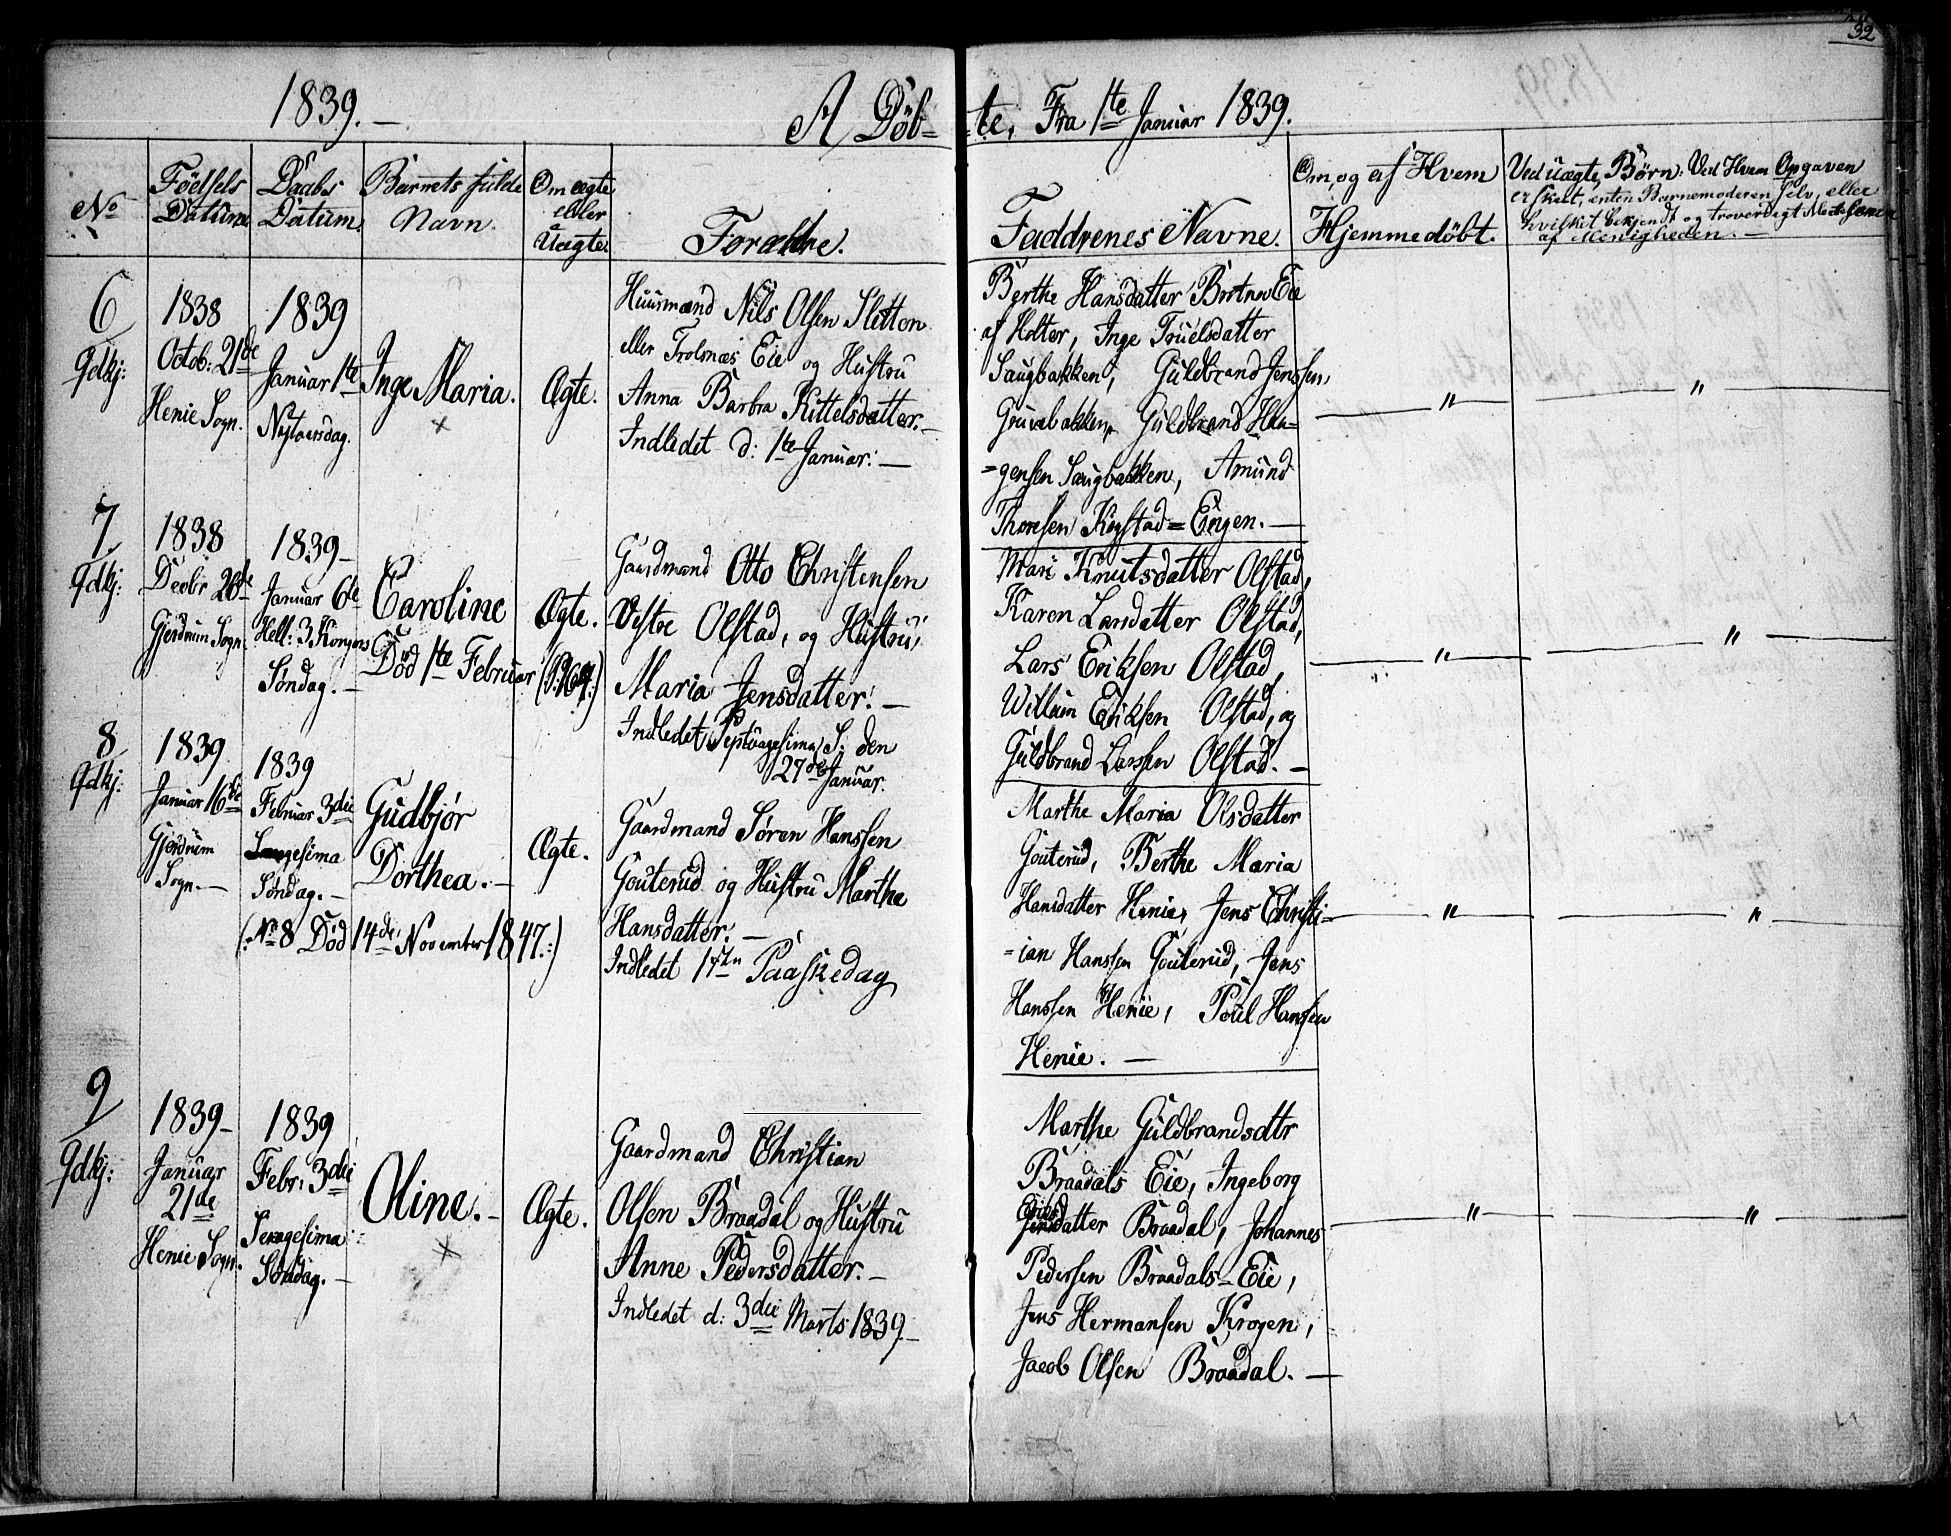 32
1839.–
A Døb=
=te, Fra 1te Januar 1839.
No
Föelsels
Datum.
Daabs
Datum.
Barnets fulde
Navn.
Om ægte
eller
Uægte.
Forældre.
Faddrenes Navne.
Om, og af Hvem
Hjemmedöbt.
Ved Uægte, Børn. Ved Hvem Opgaven
er skeet, enten Barnemoderen selv, eller
hvilket bekjendt og troværdigt Medlem
af Menigheden.–
6
Gdkj:
1838
Octob: 21de
Henie Sogn.
1839
Januar 1te
Nytaarsdag.
Inge Maria.
×
Ægte.
Huusmand Nils Olsen Sletten
eller Trolsnæs Eie og Hustru
Anna Barbra Kittelsdatter.–
Indledet d: 1te Januar.–
Berthe Hansdatter Brotner Eie
af Holter, Inge Truelsdatter
Saugbakken, Guldbrand Jenssen,
Gouvabakken, Guldbrand Haa=
=gensen Saugbakken, Amund
Thomsen Kogstad=Engen.–
"
"
7
Gdkj:
1838
Decbr 26de
Gjerdrum Sogn.
1839–
Januar 6te
Hell: 3 Kongers
Søndag.–
Caroline
Död 1te Februar
Ægte.
Gaardmand Otto Christensen
Vestre Olstad, og Hustru,
Maria Jensdatter.–
Indledet Septuagesima S: den
27de Januar.
Mari Knutsdatter Olstad,
Karen Larsdatter Olstad,
Lars Eriksen Olstad,
Willum Eriksen Olstad, og
Guldbrand Larssen Olstad.–
"
"
8
Gdkj:
1839.
Januar 16de
Gjerdrum
Sogn.–
1839
Februar 3die
Søndag.–
Gudbjør
Dorthea.–
(:No 8 Död 14de November 1847.:)
Ægte.
Gaardmand Søren Hanssen
Gouterud og Hustru Marthe
Hansdatter.–
Indledet 1ste Paaskedag
Marthe Maria Olsdatter
Gouterud, Berthe Maria
Hansdatter Henie, Jens Christi=
=ian Hanssen Gouterud, Jens
Hanssen Henie, Poul Hansen
Henie.–
"
"
9
Gdkj:
1839–
Januar
21de
Henie Sogn.
1839
Febr: 3die
Sexagesima
Søndag.–
Oline.–
×
Ægte.
Gaardmand Christian
Olsen Braadal og Hustru
Anne Pedersdatter.–
Indledet d: 3die Marts 1839.–
Marthe Guldbrandsdttr
Braadals Eie, Ingeborg
datter Braadal, Johannes
Pedersen Braadals–Eie,
Jens Hermansen Krogen,
Jacob Olsen Braadal.–
"
"